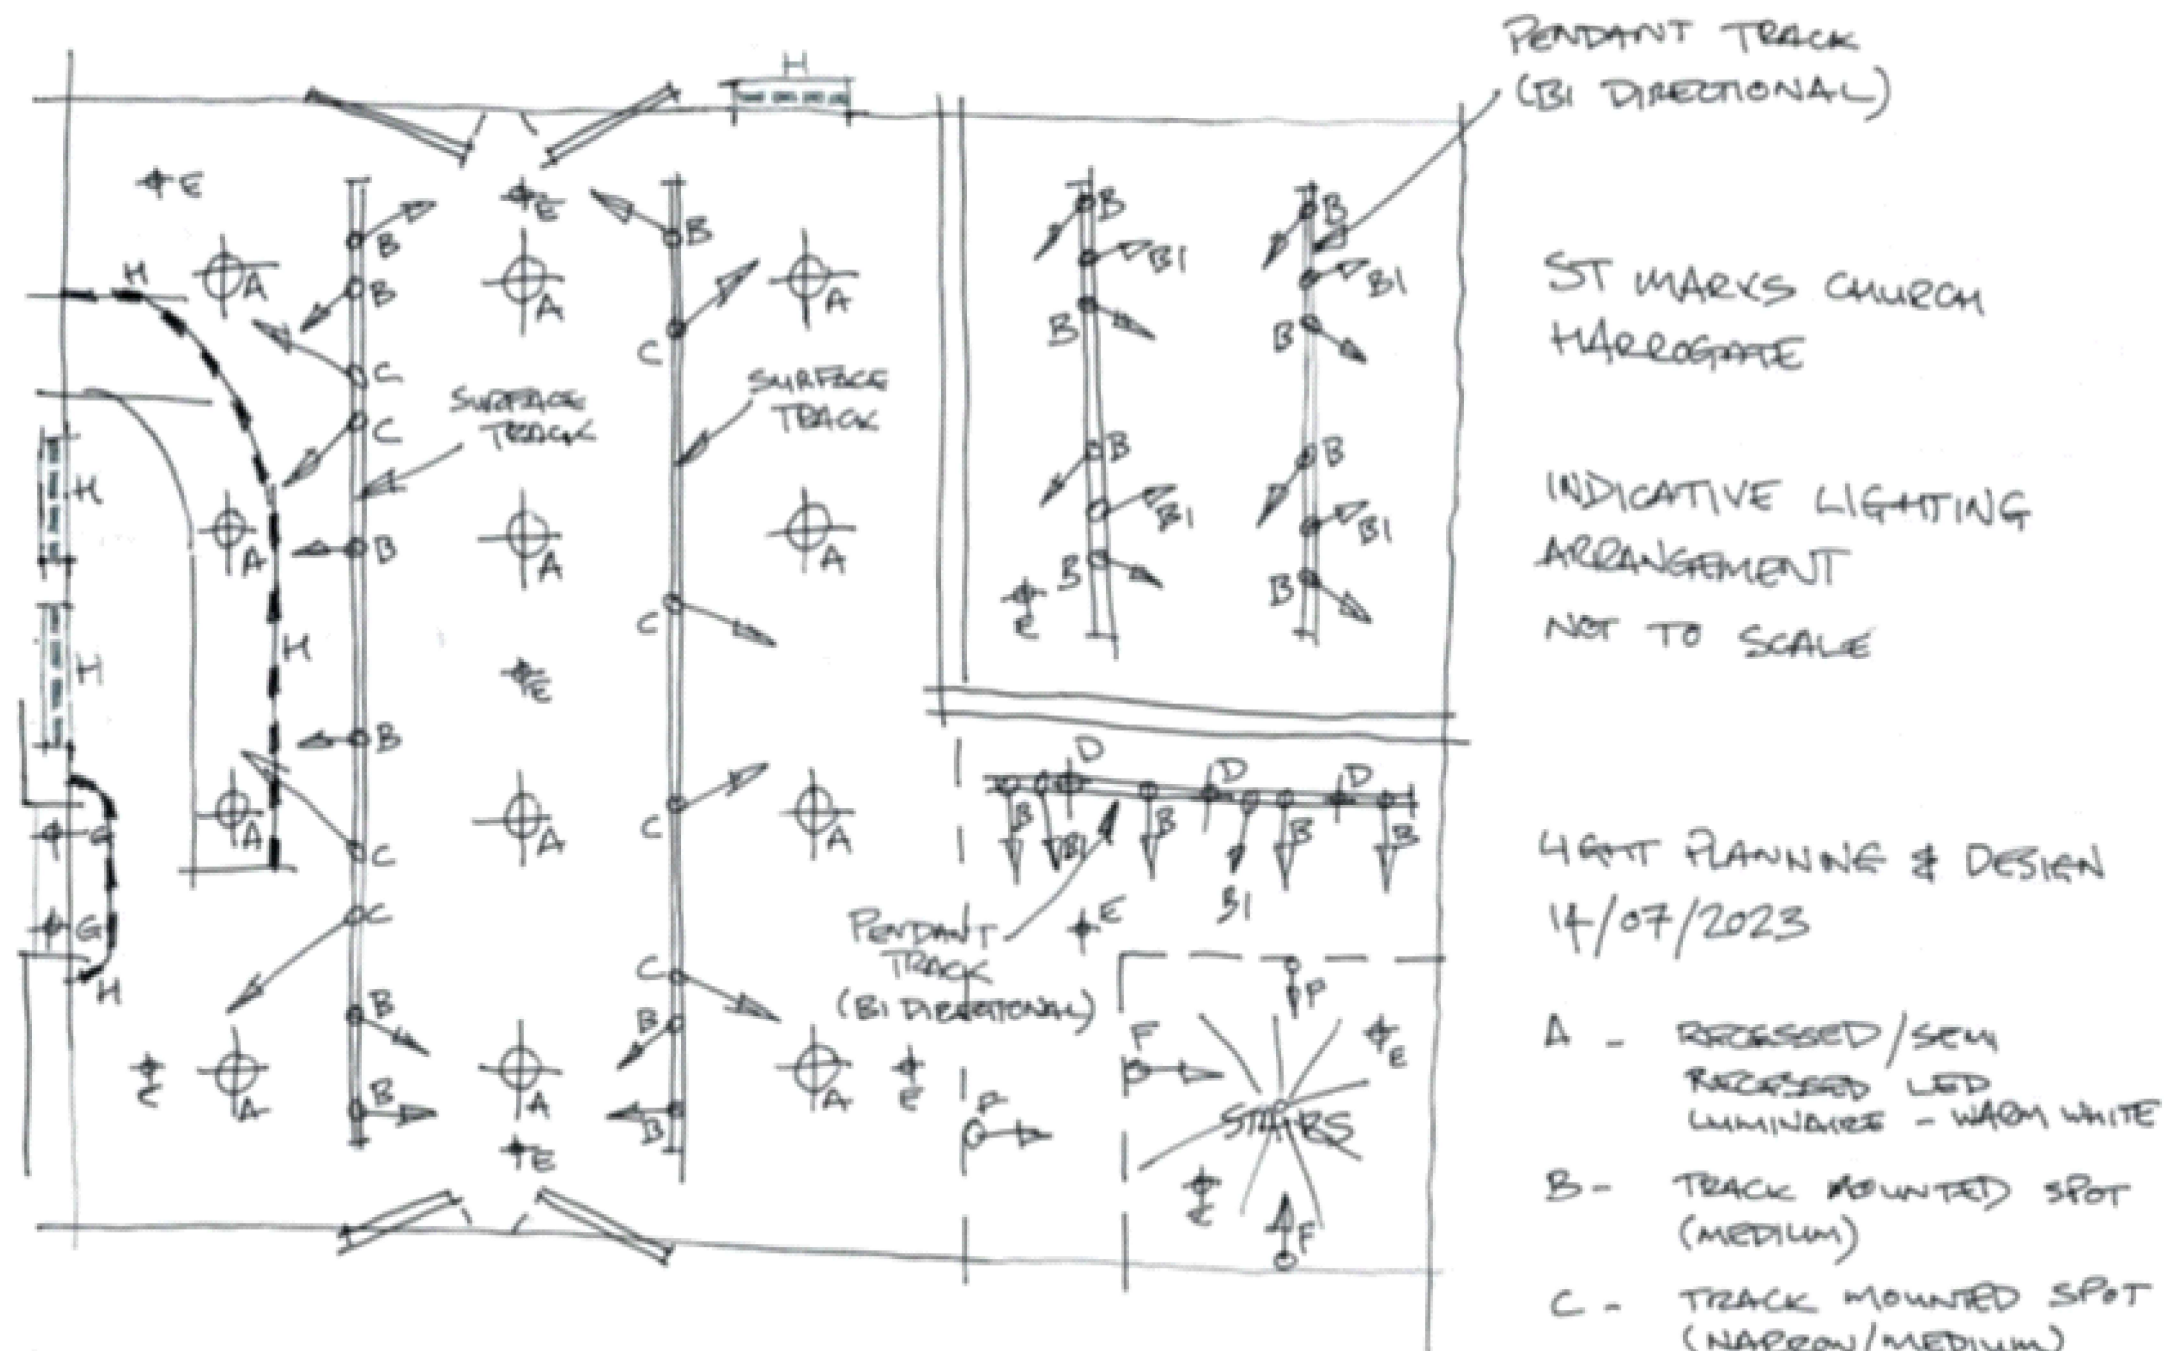 PENDANT TRACK
(BI DIRECTIONAL)
ST MARKS CHURCH
HARROGATE
INDICATIVE LIGHTING
ARRANGEMENT
NOT TO SCALE
LIGHT PLANNING & DESIGN
14/07/2023
A - RECESSED/SEMI
RECESSED LED
LUMINAIRE - WARM WHITE
B - TRACK MOUNTED SPOT
(MEDIUM)
C - TRACK MOUNTED SPOT
(NARROW/MEDIUM)
H
E
E
B
B
A
H
B
A
B
A
C
C
C
SURFACE
TRACK
SURFACE
TRACK
H
A
B
A
A
C
H
H
E
B
A
C
A
C
A
C
G
G
H
C
B
B
E
A
B
A
B
A
E
E
B
B1
B
B
B1
B
B
B1
B
B
B1
B
E
D
D
D
B
B1
B
B1
B
B
PENDANT
TRACK
(BI DIRECTIONAL)
E
F
F
E
F
STAIRS
E
F